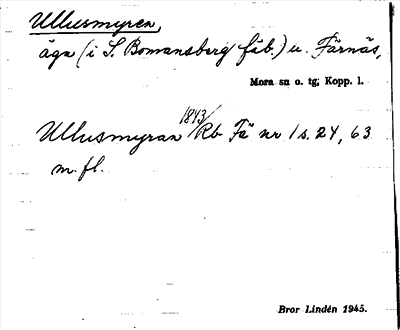 Ullusmyren,
äga (i S. Bomansberg fäb.) u. Färnäs,
Mora sn o. tg, Kopp. l.
1843/
Ullusmyran Rb Fä nr 1 s. 24, 63
m. fl.
Bror Lindén 1945.